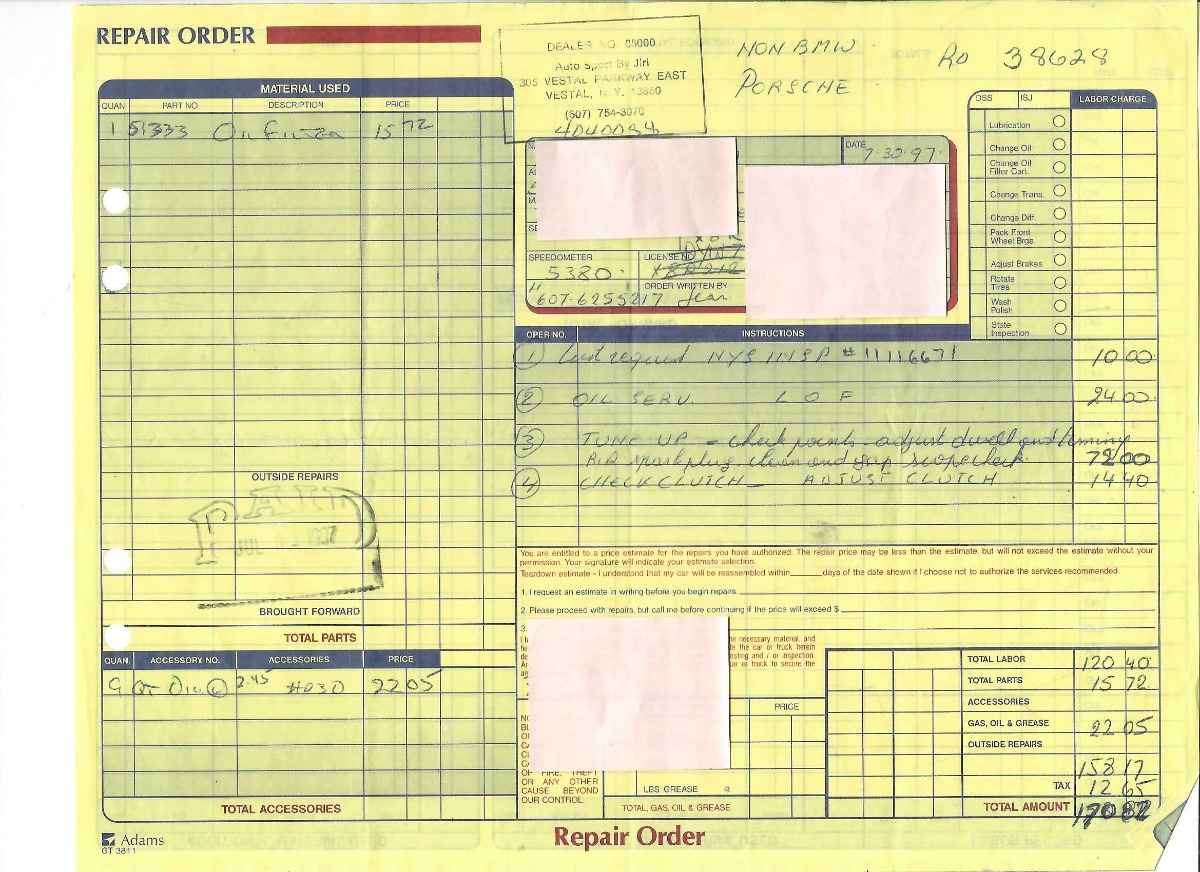 REPAIR ORDER
DEALER NO. 08000
Auto Sport By Jiri
305 VESTAL PARKWAY EAST
VESTAL, N.Y. 13850
(607) 754-3070
NON BMW
PORSCHE
RO 38628
MATERIAL USED
QUAN. PART NO. DESCRIPTION PRICE
1 51333 15 72
DATE
7-30-97
SPEEDOMETER
5380
LICENSE NO.
ORDER WRITTEN BY
607-6255217 Jean
DSS ISJ LABOR CHARGE
Lubrication
Change Oil
Change Oil
Filter Cart.
Change Trans.
Change Diff.
Pack Front
Wheel Brgs.
Adjust Brakes
Rotate
Tires
Wash
Polish
State
Inspection
OPER NO. INSTRUCTIONS
1 request NYS INSP #11116671 10 00
2 OIL SERV. L O F 24 00
3 TUNE UP - check points - adjust dwell and timing
R&R spark plug. clean and gap scope check. 72 00
4 CHECK CLUTCH - ADJUST CLUTCH 14 40
OUTSIDE REPAIRS
BROUGHT FORWARD
TOTAL PARTS
QUAN. ACCESSORY NO. ACCESSORIES PRICE
9 QT OIL @ 2.45 22 05
TOTAL ACCESSORIES
You are entitled to a price estimate for the repairs you have authorized. The repair price may be less than the estimate, but will not exceed the estimate without your
permission. Your signature will indicate your estimate selection.
Teardown estimate - I understand that my car will be reassembled within ______ days of the date shown if I choose not to authorize the services recommended.
1. I request an estimate in writing before you begin repairs.
2. Please proceed with repairs, but call me before continuing if the price will exceed $
3.
he necessary material, and
de the car or truck herein
esting and / or inspection.
car or truck to secure the
OF FIRE, THEFT
OR ANY OTHER
CAUSE BEYOND
OUR CONTROL.
PRICE
LBS GREASE @
TOTAL, GAS, OIL & GREASE
TOTAL LABOR 120 40
TOTAL PARTS 15 72
ACCESSORIES
GAS, OIL & GREASE 22 05
OUTSIDE REPAIRS
158 17
TAX 12 65
TOTAL AMOUNT 170 82
Adams
GT 3811
Repair Order